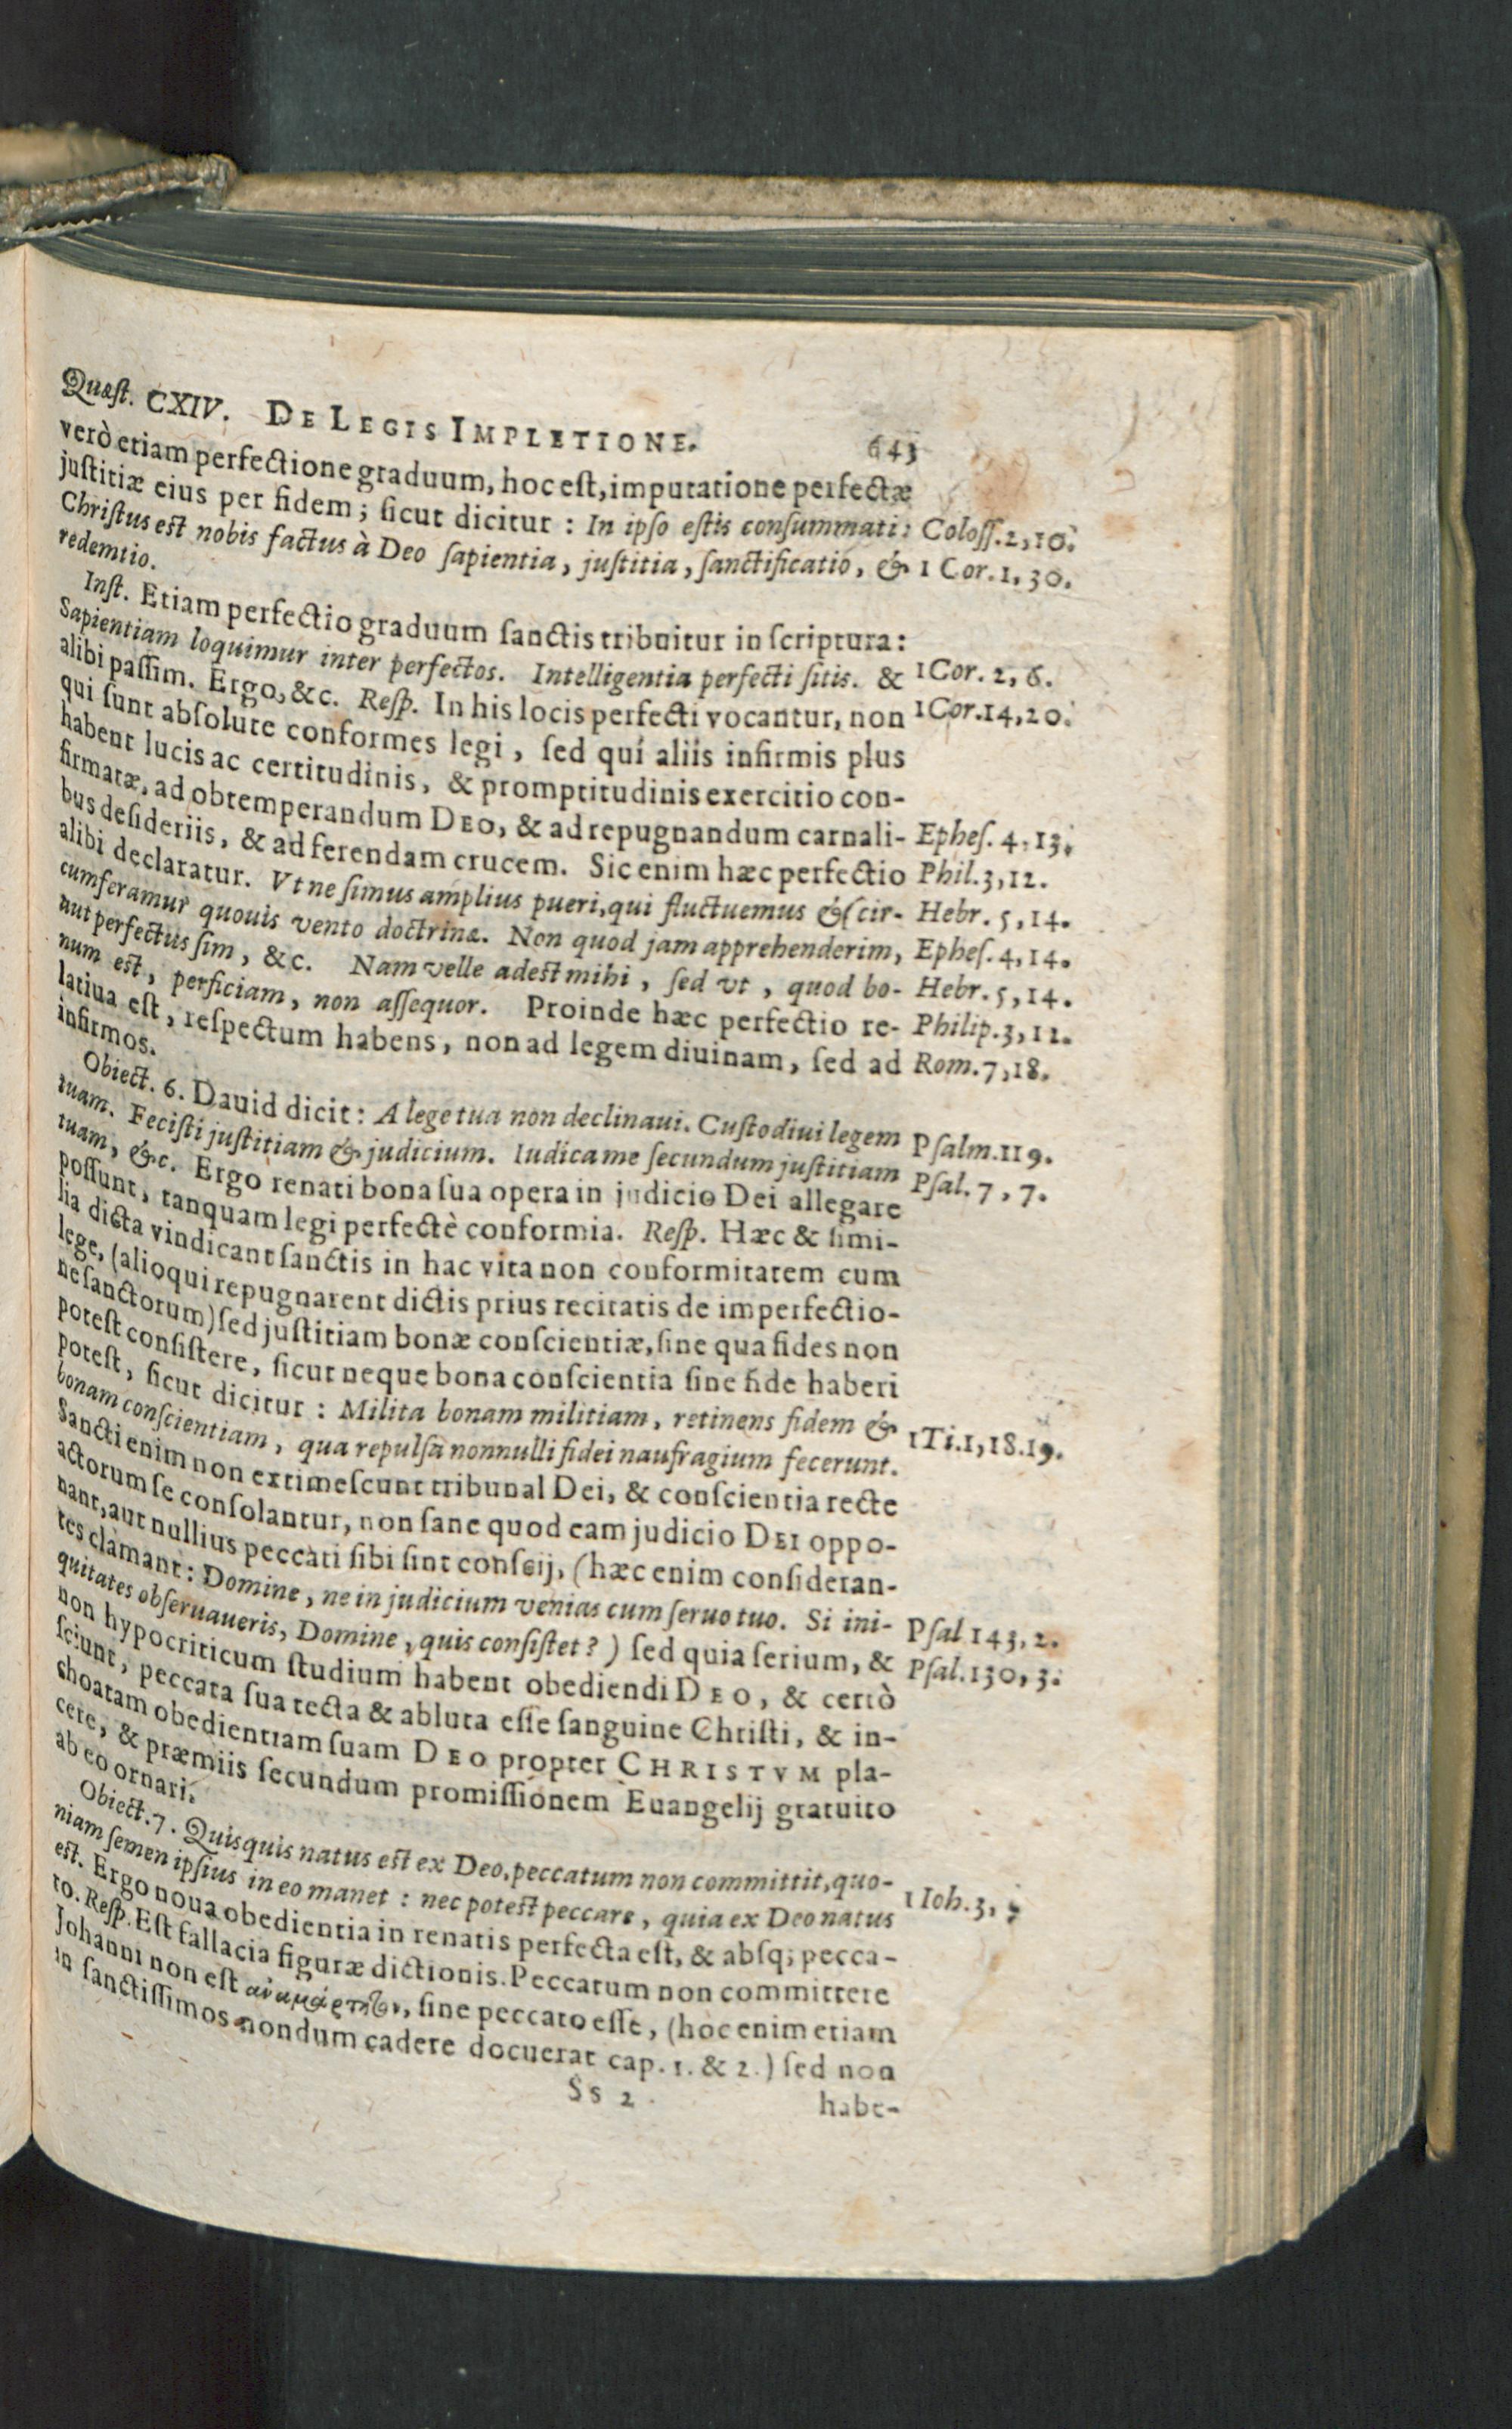 Quæſt. CXIV. DE LEGIS IMPLETIONE. 643
verò etiam perfectione graduum, hoc eſt, imputatione perfectæ
juſtitiæ eius per fidem; ſicut dicitur: In ipſo eſtis conſummati: Coloſſ. 2, 10.
Chriſtus est nobis factus à Deo ſapientia, juſtitia, ſanctificatio, & 1 Cor. 1, 30.
redemtio.
Inſt. Etiam perfectio graduum ſanctis tribuitur in ſcriptura:
Sapientiam loquimur inter perfectos. Intelligentia perfecti ſitis. & 1 Cor. 2, 6.
alibi paſſim. Ergo, &c. Reſp. In his locis perfecti vocantur, non 1 Cor. 14, 20.
qui ſunt abſolute conformes legi, ſed qui aliis infirmis plus
habent lucis ac certitudinis, & promptitudinis exercitio con-
firmatæ, ad obtemperandum DEO, & ad repugnandum carnali- Epheſ. 4, 13.
bus deſideriis, & ad ferendam crucem. Sic enim hæc perfectio Phil. 3, 12.
alibi declaratur. Vt ne ſimus amplius pueri, qui fluctuemus & cir- Hebr. 5, 14.
cumferamur quouis vento doctrinæ. Non quod jam apprehenderim, Epheſ. 4, 14.
aut perfectus ſim, &c. Nam velle adest mihi, ſed vt, quod bo- Hebr. 5, 14.
num est, perficiam, non aſſequor. Proinde hæc perfectio re- Philip. 3, 12.
latiua eſt, reſpectum habens, non ad legem diuinam, ſed ad Rom. 7, 18.
infirmos.
Obiect. 6. Dauid dicit: A lege tua non declinaui. Cuſtodiui legem Pſalm. 119.
tuam. Feciſti juſtitiam & judicium. Iudica me ſecundum juſtitiam Pſal. 7, 7.
tuam, &c. Ergo renati bona ſua opera in judicio Dei allegare
poſſunt, tanquam legi perfectè conformia. Reſp. Hæc & ſimi-
lia dicta vindicant ſanctis in hac vita non conformitatem cum
lege, (alioqui repugnarent dictis prius recitatis de imperfectio-
ne ſanctorum) ſed juſtitiam bonæ conſcientiæ, ſine qua fides non
poteſt conſiſtere, ſicut neque bona conſcientia ſine fide haberi
poteſt, ſicut dicitur: Milita bonam militiam, retinens fidem &
bonam conſcientiam, qua repulſa nonnulli fidei naufragium fecerunt. 1 Ti. 1, 18. 19.
Sancti enim non extimeſcunt tribunal Dei, & conſcientia recte
actorum ſe conſolantur, non ſane quod eam judicio DEI oppo-
nant, aut nullius peccati ſibi ſint conſcij, (hæc enim conſideran-
tes clamant: Domine, ne in judicium venias cum ſeruo tuo. Si ini- Pſal 143, 2.
quitates obſeruaueris, Domine, quis conſiſtet?) ſed quia ſerium, & Pſal. 130, 3.
non hypocriticum ſtudium habent obediendi DEO, & certò
ſciunt, peccata ſua tecta & abluta eſſe ſanguine Chriſti, & in-
choatam obedientiam ſuam DEO propter CHRISTVM pla-
cere, & præmiis ſecundum promiſſionem Euangelij gratuito
ab eo ornari.
Obiect. 7. Quisquis natus est ex Deo, peccatum non committit, quo-
niam ſemen ipſius in eo manet: nec potest peccare, quia ex Deo natus 1 Ioh. 3,
est. Ergo noua obedientia in renatis perfecta eſt, & abſq; pecca-
to. Reſp. Eſt fallacia figuræ dictionis. Peccatum non committere
Johanni non eſt ſine peccato eſſe, (hoc enim etiam
in ſanctiſſimos nondum cadere docuerat cap. 1. & 2.) ſed non
Ss 2 habe-